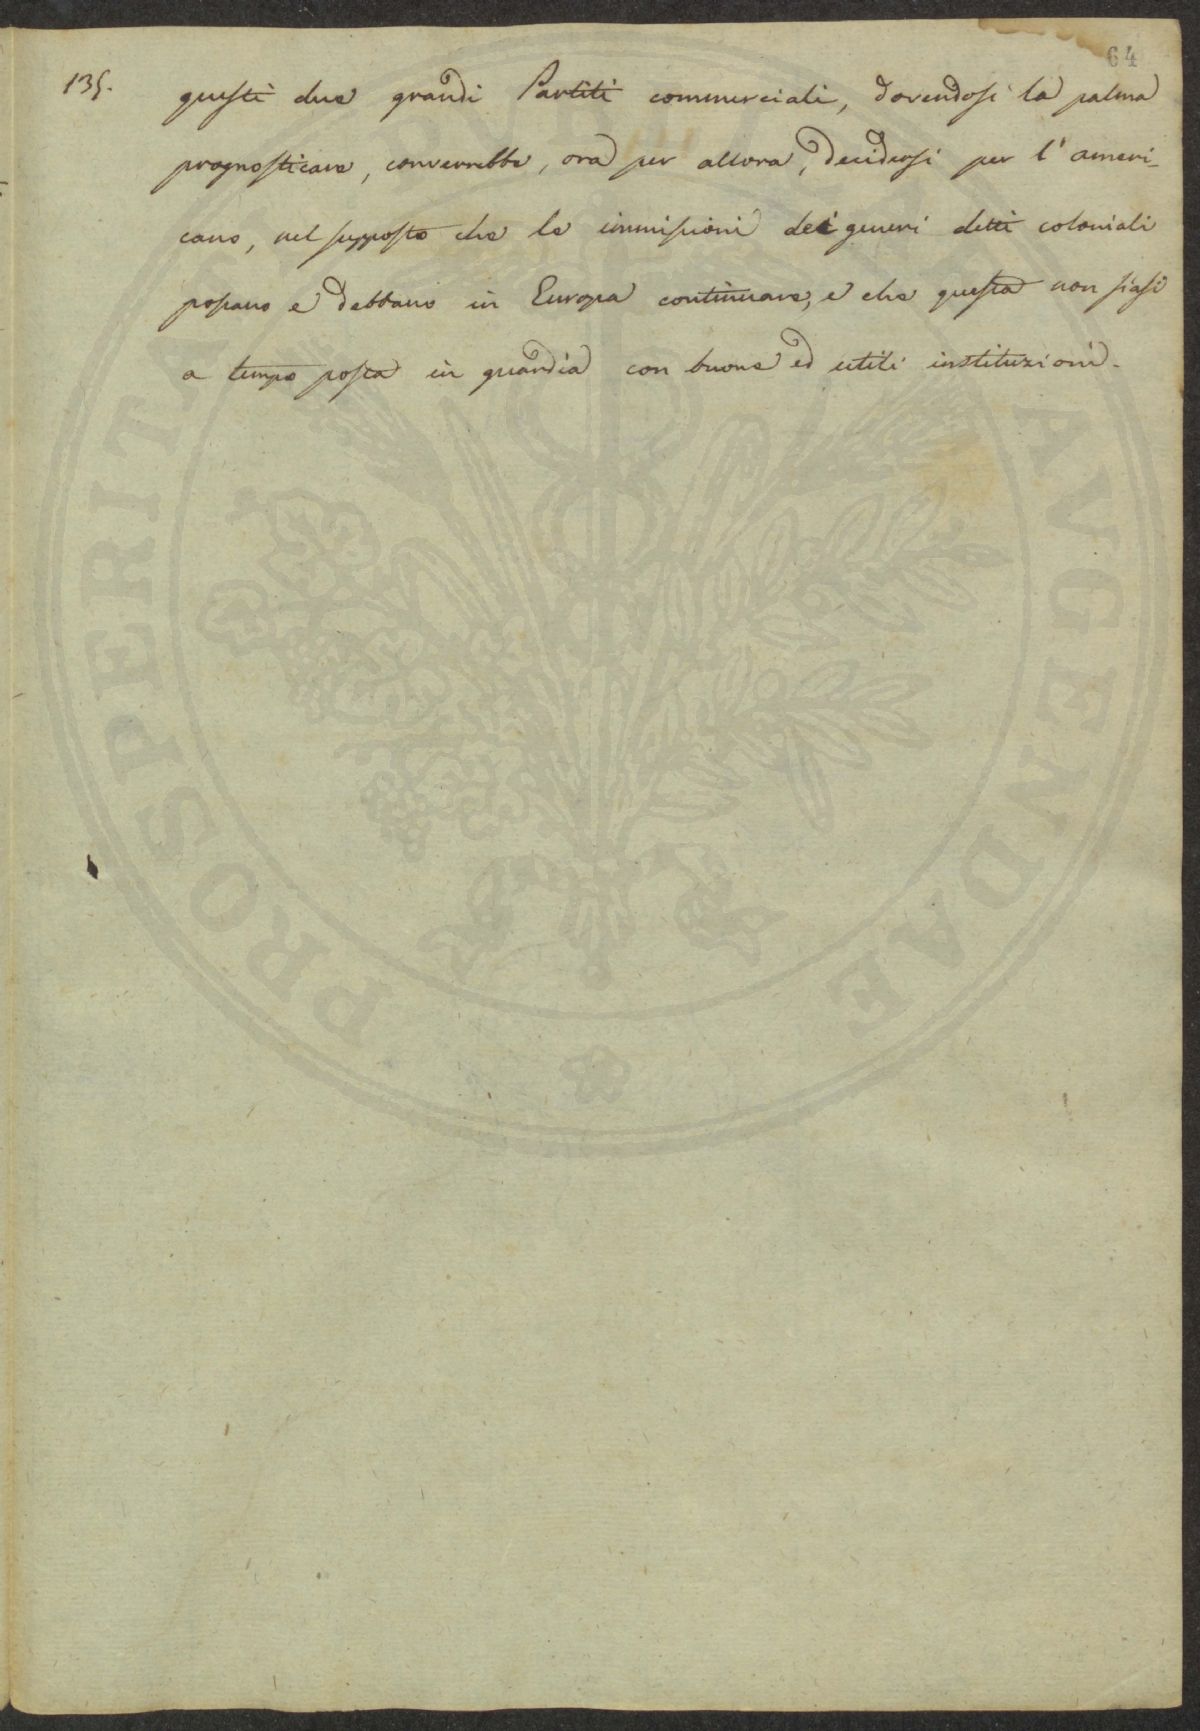 64
135.
questi due grandi Partiti commerciali, dovendosi la palma
prognosticare, converrebbe, ora per allora, decidersi per l'ameri-
cano, nel supposto che le immissioni dei generi detti coloniali
possano e debbano in Europa continuare, e che questa non siasi
a tempo posta in guardia con buone ed utili instituzioni.
PROSPERITA
AVGENDAE